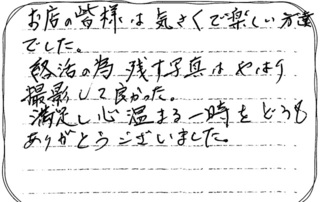 お店の皆様は気さくで楽しい方達
でした。
終活の為残す写真はやはり
撮影して良かった。
満足し心温まる一時をどうも
ありがとうございました。